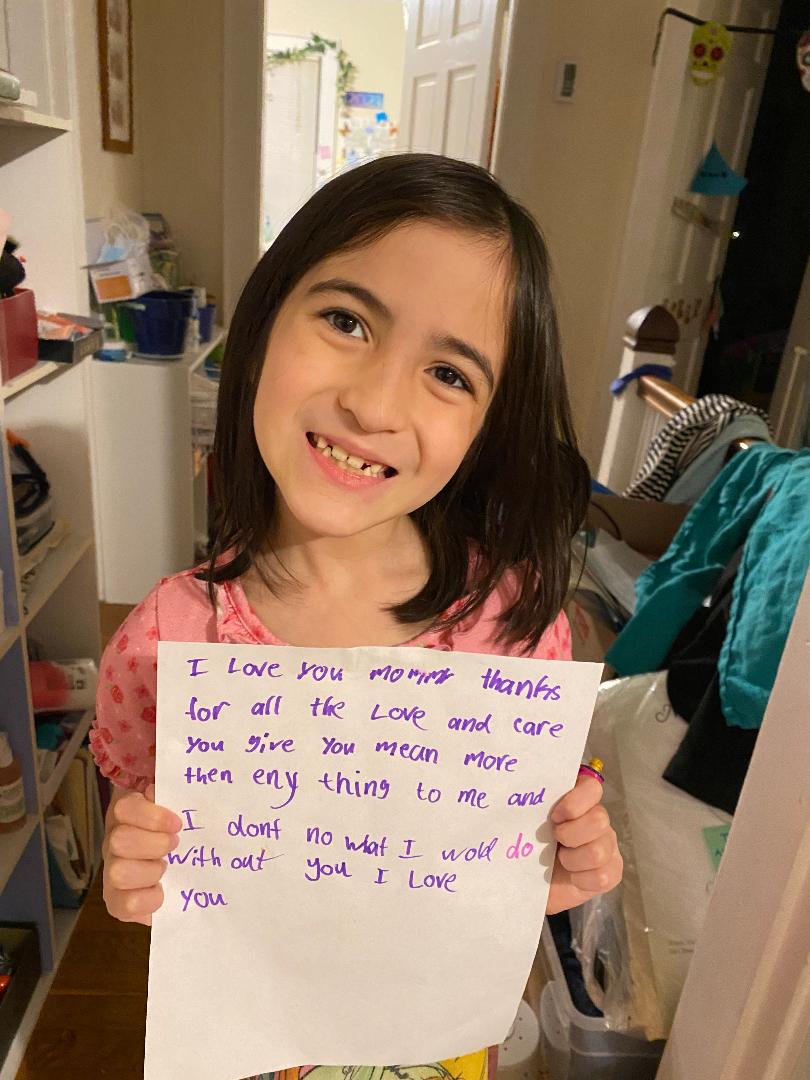 I Love you mommy thanks
for all the Love and care
you give you mean more
then eny thing to me and
I dont no what I wold do
with out you I Love
you